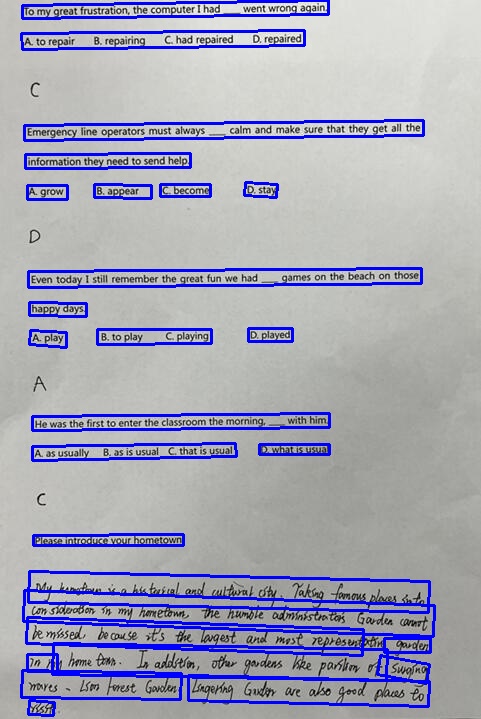 To my great frustration, the computer I had ___ went wrong again.
A. to repair B. repairing C. had repaired D. repaired
C
Emergency line operators must always ___ calm and make sure that they get all the
information they need to send help.
A. grow B. appear C. become D. stay
D
Even today I still remember the great fun we had ___ games on the beach on those
happy days.
A. play B. to play C. playing D. played
A
He was the first to enter the classroom the morning, ___ with him.
A. as usually B. as is usual C. that is usual D. what is usual
C
Please introduce your hometown
My hometown is a historical and cultural city. Taking famous places into
consideration in my hometown, the humble administrators Garden cannot
be missed, because it's the largest and most representatin garden
in my home town. In addition, other gardens like parilion of
Lion Forest Garden Lingering Garden are also good places to
visit.